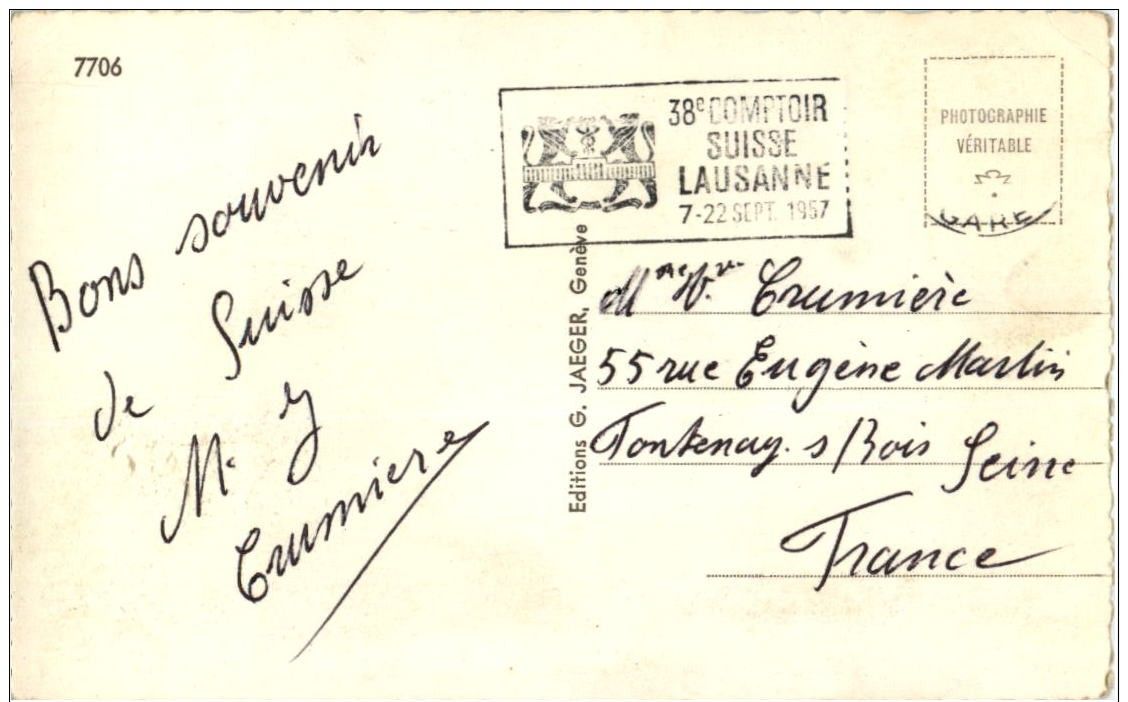 7706
38e COMPTOIR
SUISSE
LAUSANNE
7-22 SEPT. 1957
PHOTOGRAPHIE
VÉRITABLE
GARE
Bons souvenir
de Suisse
M.
Crumiere
Editions G. JAEGER, Genève
Mme Vve Crumière
55 rue Eugène Martin
Fontenay s/Bois Seine
France